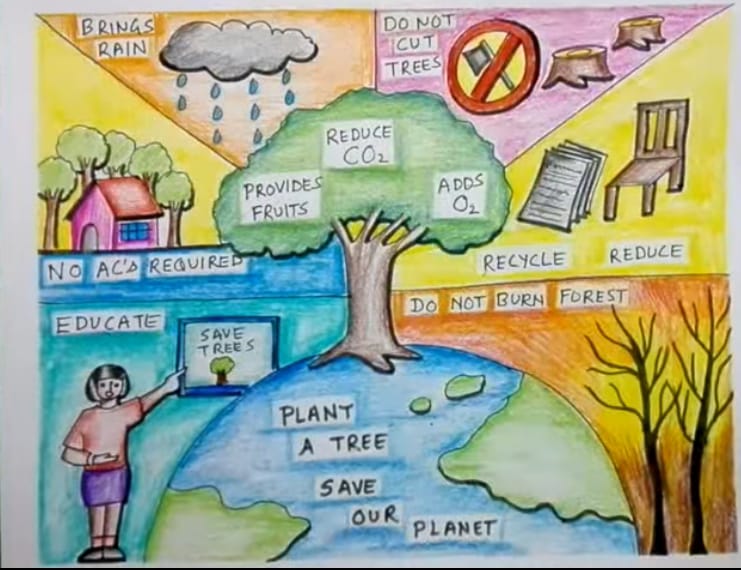 BRINGS
RAIN
DO NOT
CUT
TREES
REDUCE
CO₂
PROVIDES
FRUITS
ADDS
O₂
NO AC'S REQUIRED
RECYCLE
REDUCE
DO NOT BURN FOREST
EDUCATE
SAVE
TREES
PLANT
A TREE
SAVE
OUR
PLANET